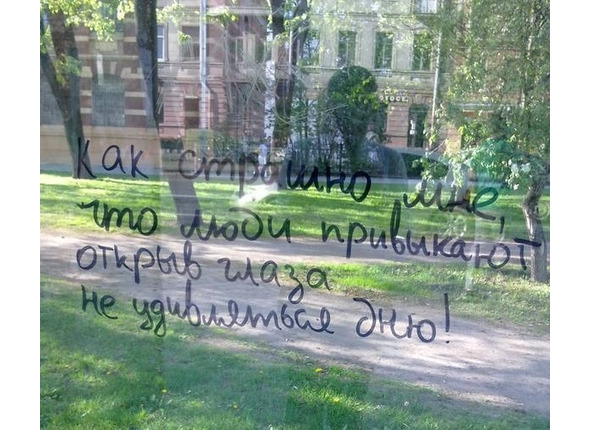 Как страшно мне,
что люди привыкают
открыв глаза
не удивляться дню!